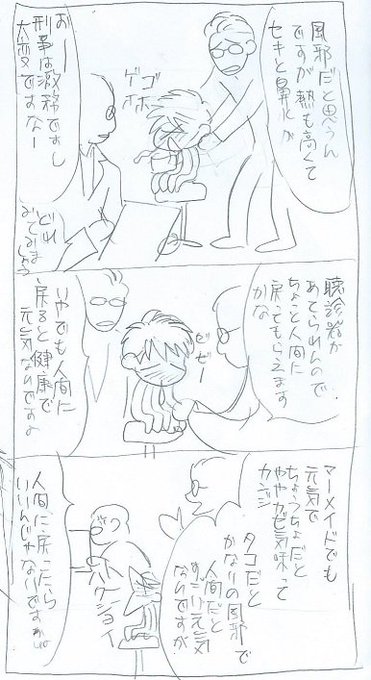 風邪だと思うん
ですが熱も高くて
セキと鼻水が
ゲゴ
ホホ
おー
刑事は激務ですし
大変ですなー
どれ
みてみましょう
聴診器が
あてられんので
ちょっと人間に
戻ってもらえます
かな
ゼー
ゼー
いやでも人間に
戻ると健康で
元気なんですよ
マーメイドでも
元気で
ちょうちょだと
ややカゼ気味って
カンジ
タコだと
かなりの風邪で
人間だと
すごい元気
なんですが
ハークショイ
人間に戻ったら
いいんじゃないですかね